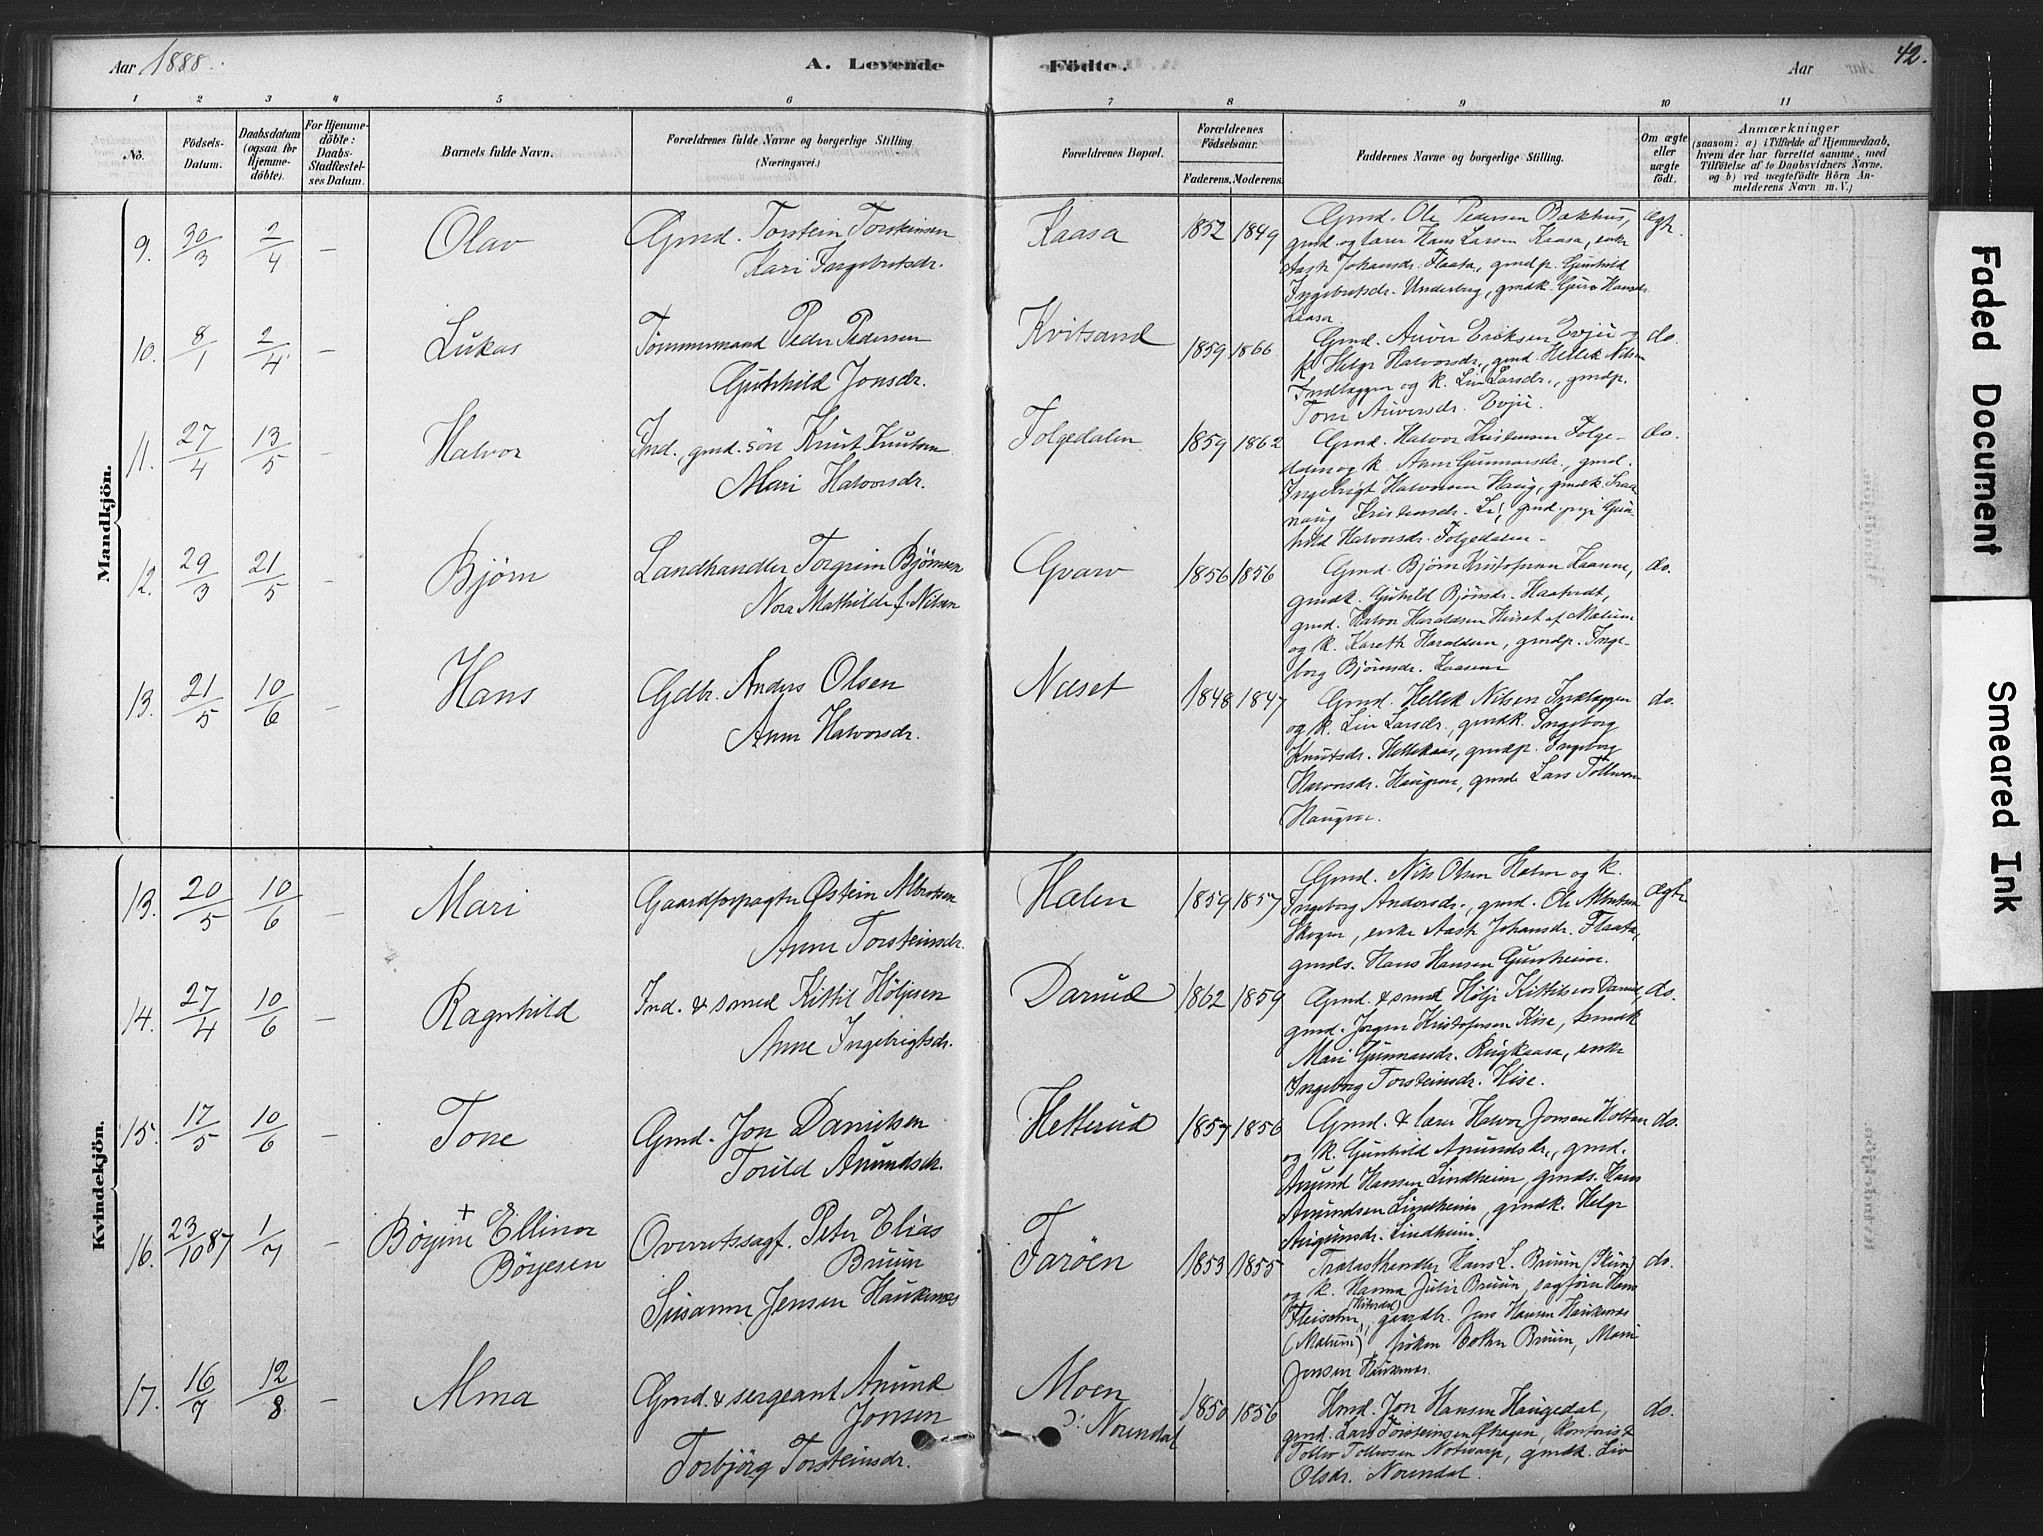 Aar 1888.
A. Levende Födte.
Aar
42.
1 2 3 4 5 6 7 8 9 10 11
Nò.
Födsels-Datum.
Daabsdatum (ogsaa for Hjemme-döbte).
For Hjemme-döbte: Daabs-Stadfæstel-ses Datum.
Barnets fulde Navn.
Forældrenes fulde Navne og borgerlige Stilling
(Næringsvei.)
Forældrenes Bopæl.
Forældrenes Födselsaar.
Faderens. Moderens.
Faddernes Navne og borgerlige Stilling.
Om ægte eller uægte födt.
Anmærkninger
(saasom: a) i Tilfælde af Hjemmedaab, hvem der har forrettet samme, med Tilföielse af to Daabsvidners Navne. og b) ved uægtefödte Börn An-melderens Navn m. V.)
Mandkjön.
9. 30/3 2/4 – Olav
Gmd. Torstein Torsteinsen
Kari Ingebretsdr.
Kaasa 1852 1849
Gmd. Ole Pedersen Bakhus,
gmd. og lærer Hans Larsen Kaasa, enke
Aaste Johansdr. Flaata, gmdp. Gunhild
Ingebretsdr. Underberg, gmdk. Guro Hansdr.
Kaasa
ægt.
10. 8/1 2/4 – Lukas
Tømmermand Peder Pedersen
Gunhild Jonsdr.
Kvitsand 1859 1866
Gmd. Auver Eriksen Evju og
k. Helge Halvorsdr., gmd. Hellek Nilsen
og k. Liv Larsdr., gmdp.
Tone Auversdr. Evju.
do.
11. 27/4 13/5 – Halvor
Ind., gmd. søn Knut Knutsen
Mari Halvorsdr.
Folgedalen 1859 1862
Gmd. Halvor Kristensen Folge-
dalen og k. Anne Gunnarsdr., gmd.
Ingebrigt Halvorsen Haug, gmdk.
Kristensdr. Li, gmd. pige Gun-
hild Halvorsdr. Folgedalen –
do.
12. 29/3 21/5 – Bjørn
Landhandler Torgrim Bjørnsen
Nora Mathilde f. Nilsen
Gvarv 1856 1856
Gmd. Bjørn Kristofersen Kaasene,
gmdk. Gunhild Bjørnsdr. Haatvedt,
gmd. Halvor Haraldsen Huset af Mælum
og k. Karethe Haraldsen, gmdp. Inge-
borg Bjørnsdr. Kaasene
do.
13. 21/5 10/6 – Hans
Gdbr. Anders Olsen
Anne Halvorsdr.
Næset 1848 1847
Gmd. Hellek Nilsen
og k. Liv Larsdr., gmdk. Ingeborg
Knutsdr. Hellekaas, gmdp. Ingeborg
Halvorsdr. Haugene, gmd. Lars Tollevsen
Haugene.
do.
Kvindekjön.
13. 20/5 10/6 – Mari
Gaardforpagter Østein Albretsen
Anne Torsteinsdr.
Halen 1859 1857
Gmd. Nils Olsen Halen og k.
Ingeborg Andersdr., gmd. Ole Albretsen
Skogen, enke Aaste Johansdr. Flaata,
gmds. Hans Hansen Gunheim.
ægte
14. 27/4 10/6 – Ragnhild
Ind. & smed Kittil Höljesen
Anne Ingebrigtsdr.
Darud 1862 1859
Gmd. & smed Hölje Kittilsen Darud,
gmd. Jørgen Kristofersen Kise, gmdk.
Mari Gunnarsdr. Ringkaasa, enke
Ingeborg Torsteinsdr. Kise.
do.
15. 17/5 10/6 – Tone
Gmd. Jon Danielsen
Torild Anundsdr.
Hetterud 1857 1856
Gmd. & lærer Halvor Jonsen Holtan
og k. Gunhild Anundsdr., gmd.
Anund Hansen Lindheim, gmds. Hans
Anundsen Lindheim, gmdk. Helge
Lindheim.
do.
16. 23/10 87 1/7 – Börgine + Ellinor
Börgesen
Overretssagf. Peter Elias
Bruun
Susanne Jensen Haukenæs
Faröen 1853 1855
Trælasthandler Hans L. Bruun (Skien)
og k. Hanna Julie Bruun, sagfører Hans
Fleischer (Hiterdal), gaardbr. Jens Hansen Haukenæs
(Mælum), frøken Bruun, Marie
Jensen Haukenæs.
do.
17. 16/7 12/8 – Alma
Gmd. & sergeant Anund
Jonsen
Torbjörg Torsteinsdr.
Moen
ɔ: Norendal 1850 1856
Hmd. Jon Hansen Haugedal,
gmd. Lars Torsteinsen Skogen, kontorist
Tollev Tollevsen Notevarp, gmdk. Liv
Olsdr. Norendal.
do.
Faded Document
Smeared Ink